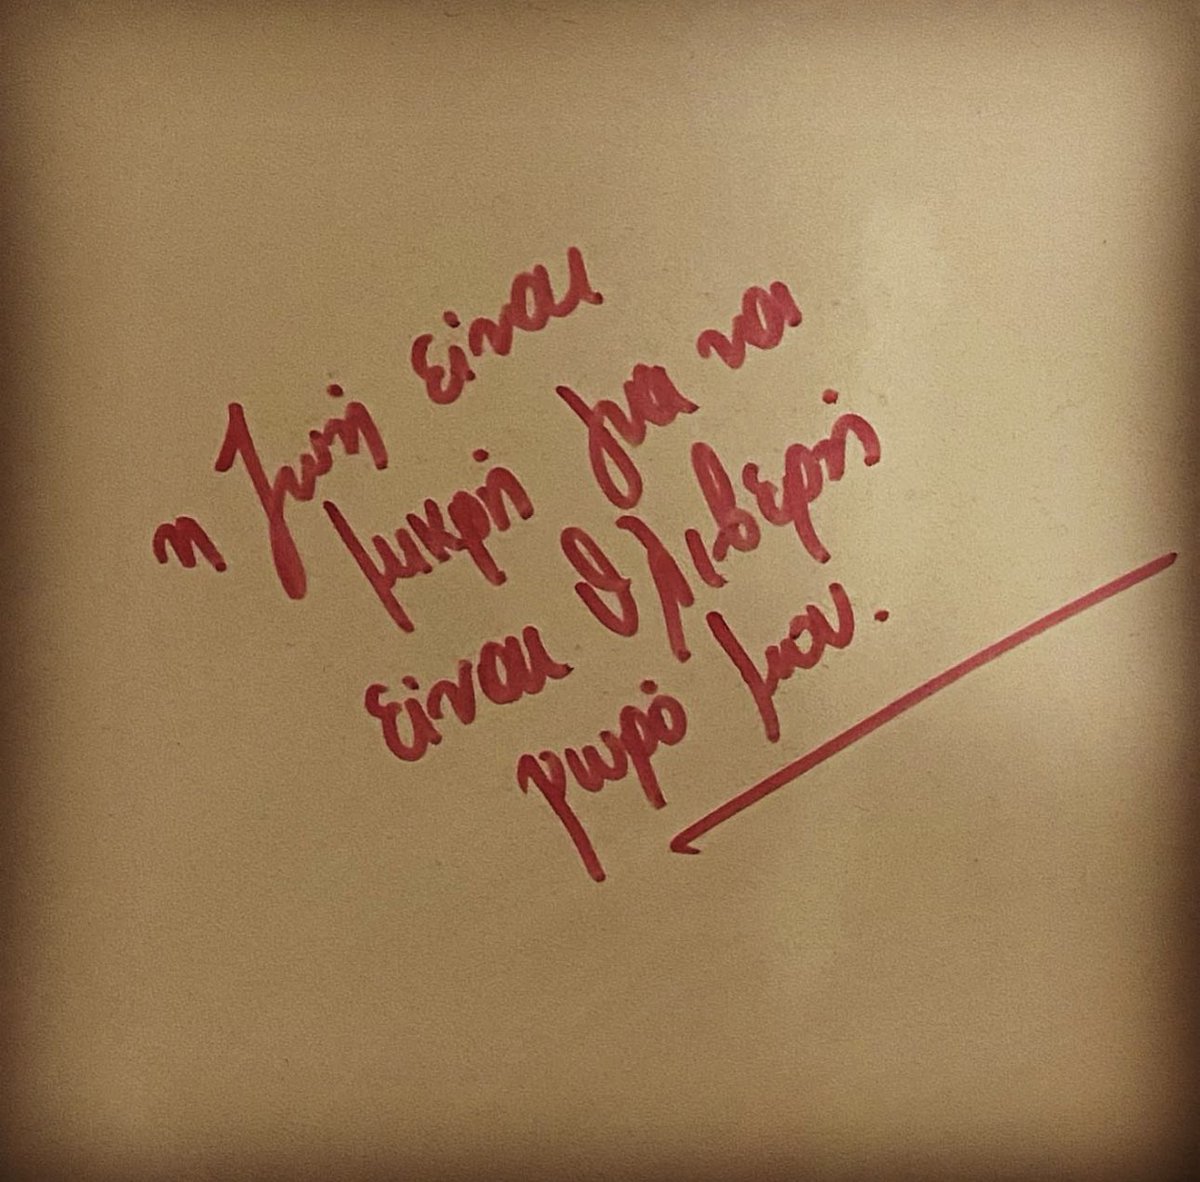 η ζωή είναι
μικρή για να
είναι θλιβερή
μωρό μου.